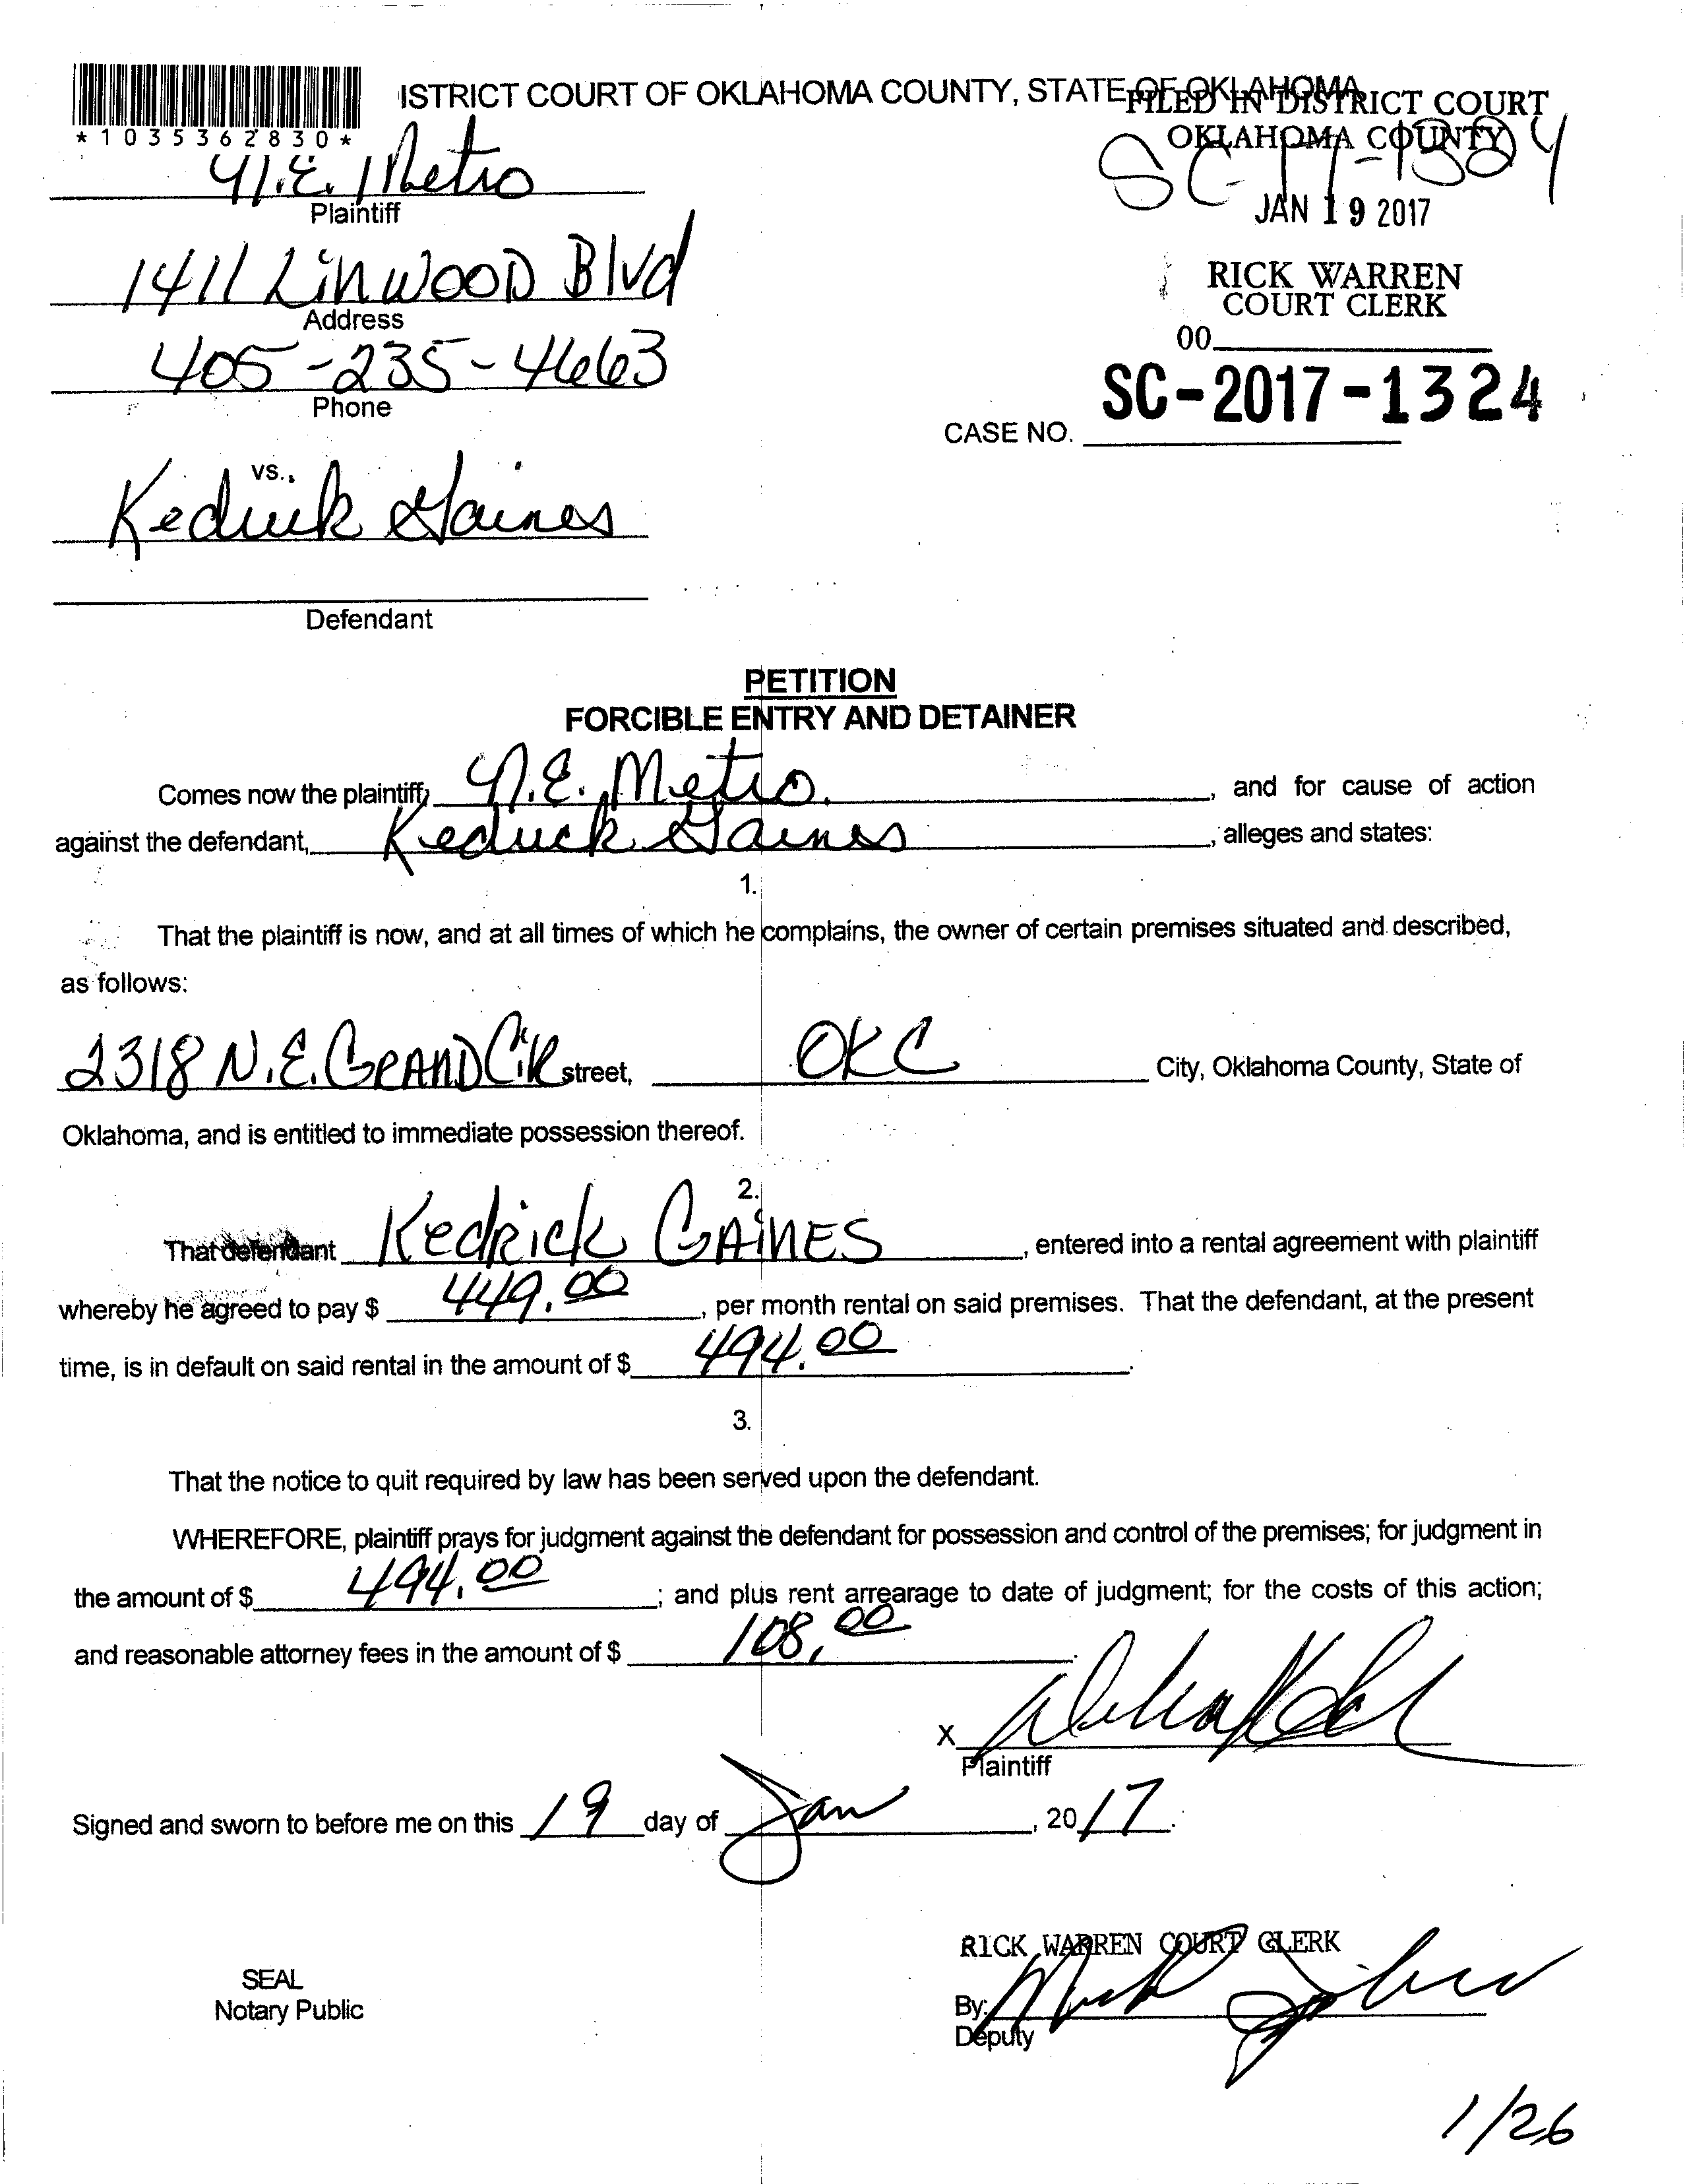 ISTRICT COURT OF OKLAHOMA COUNTY, STATE OF OKLAHOMA
FILED IN DISTRICT COURT
OKLAHOMA COUNTY
*1035362830*
SC-17-1324
N.E. Metro
Plaintiff
JAN 19 2017
1411 LINWOOD Blvd
Address
RICK WARREN
COURT CLERK
405-235-4663
Phone
00
SC-2017-1324
CASE NO.
vs.,
Kedrick Gaines
Defendant
PETITION
FORCIBLE ENTRY AND DETAINER
Comes now the plaintiff, N.E. Metro, and for cause of action
against the defendant, Kedrick Gaines, alleges and states:
1.
That the plaintiff is now, and at all times of which he complains, the owner of certain premises situated and described,
as follows:
2318 N.E. GRAND CiR street, OKC City, Oklahoma County, State of
Oklahoma, and is entitled to immediate possession thereof.
2.
That defendant Kedrick GAiNES, entered into a rental agreement with plaintiff
whereby he agreed to pay $ 449.00, per month rental on said premises. That the defendant, at the present
time, is in default on said rental in the amount of $ 494.00.
3.
That the notice to quit required by law has been served upon the defendant.
WHEREFORE, plaintiff prays for judgment against the defendant for possession and control of the premises; for judgment in
the amount of $ 494.00; and plus rent arrearage to date of judgment; for the costs of this action;
and reasonable attorney fees in the amount of $ 108.00.
X
Plaintiff
Signed and sworn to before me on this 19 day of Jan, 2017.
RICK WARREN COURT CLERK
SEAL
Notary Public
By:
Deputy
1/26